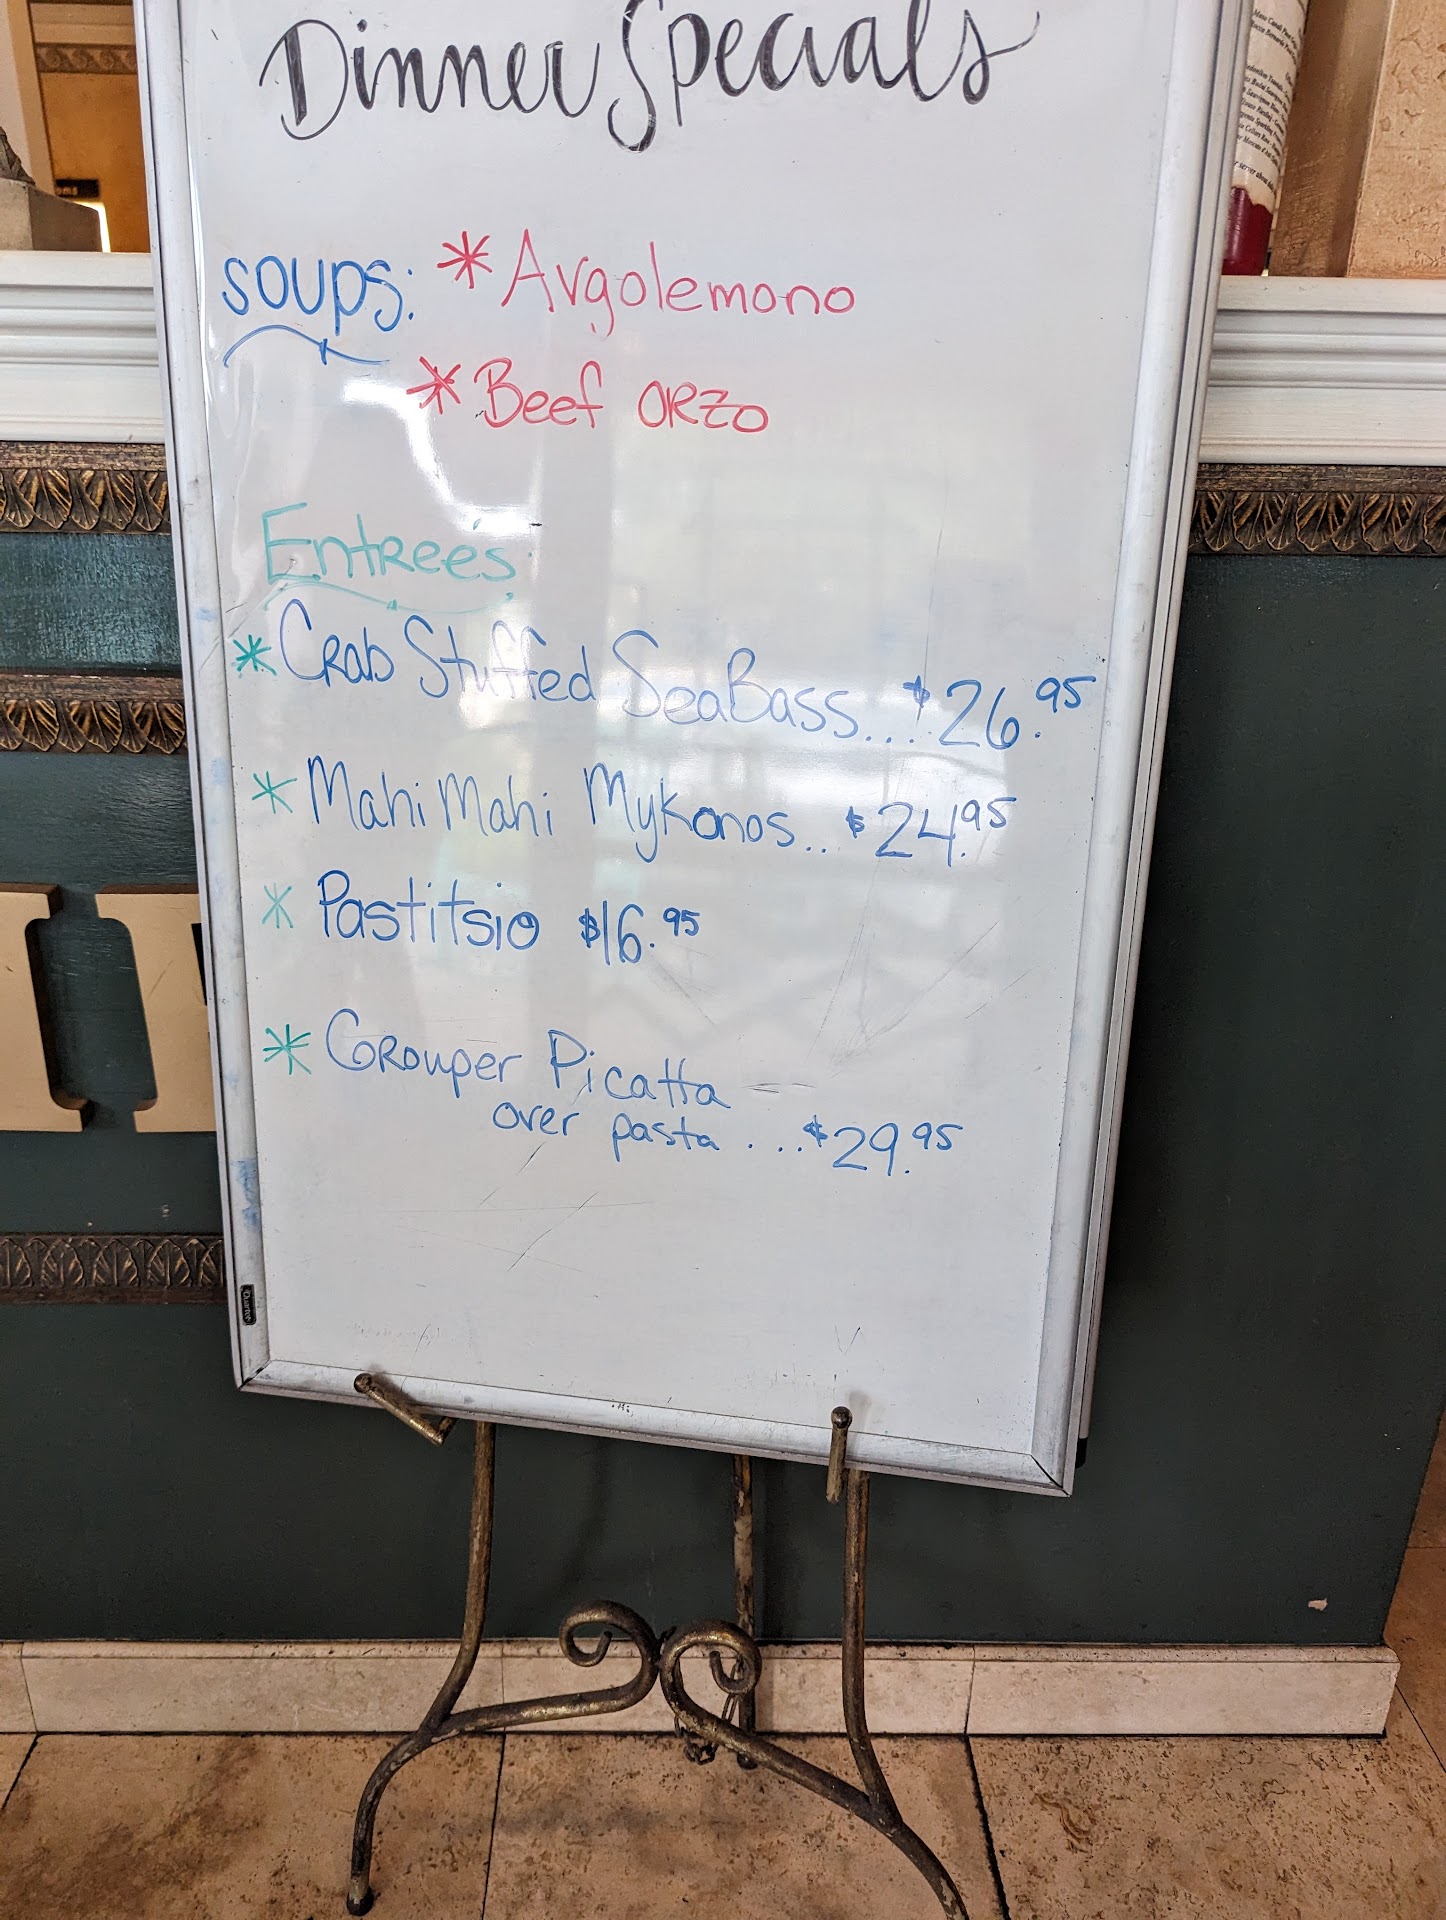 Dinner Specials
soups: * Avgolemono
* Beef ORZO
Entreés:
* Crab Stuffed SeaBass....$26.95
* Mahi Mahi Mykonos..$24.95
* Pastitsio $16.95
* Grouper Picatta
over pasta ....$29.95
Quartet